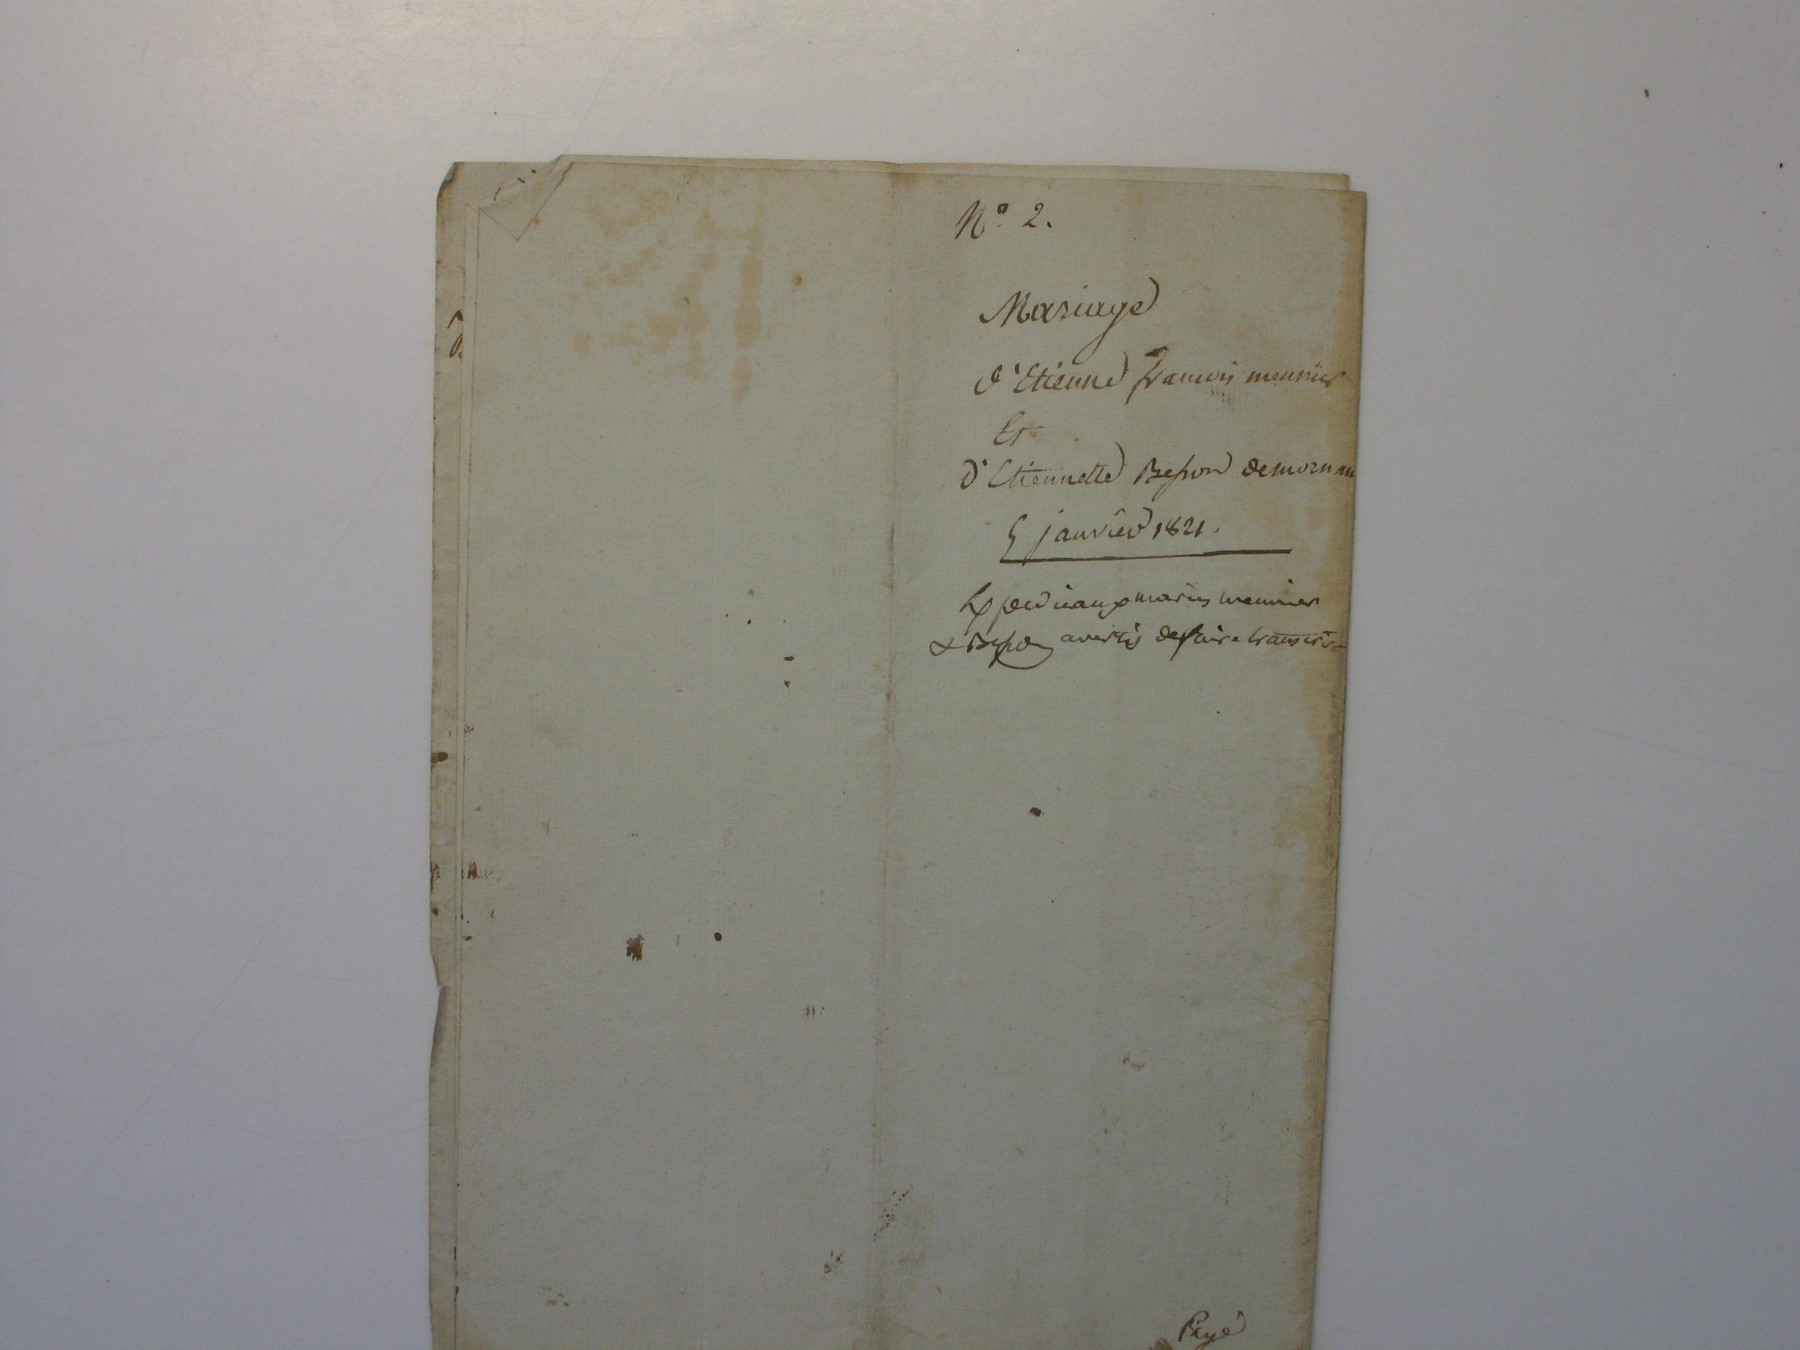 N° 2.
Mariage
d'Etienne francois meunier
Et
d'Etiennette Besson de mornan
5 janvier 1821.
Expedié aux mariés meunier
& Besson avertis de faire transcrire
Payé